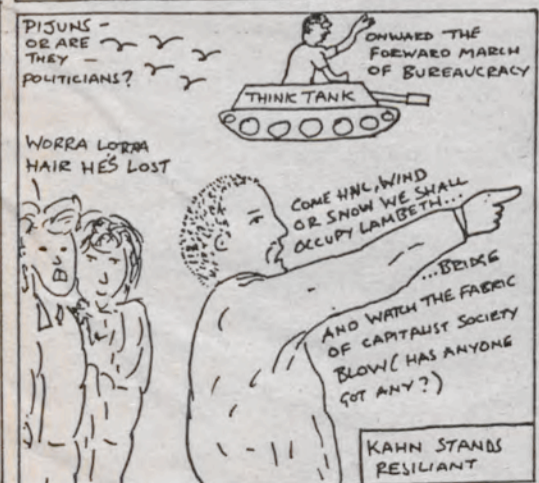 PIJUNS -
OR ARE
THEY -
POLITICIANS?
ONWARD THE
FORWARD MARCH
OF BUREAUCRACY
THINK TANK
WORRA LORRA
HAIR HE'S LOST
COME HAIL, WIND
OR SNOW WE SHALL
OCCUPY LAMBETH...
...BRIDGE
AND WATCH THE FABRIC
OF CAPITALIST SOCIETY
BLOW (HAS ANYONE
GOT ANY?)
KAHN STANDS
RESILIANT